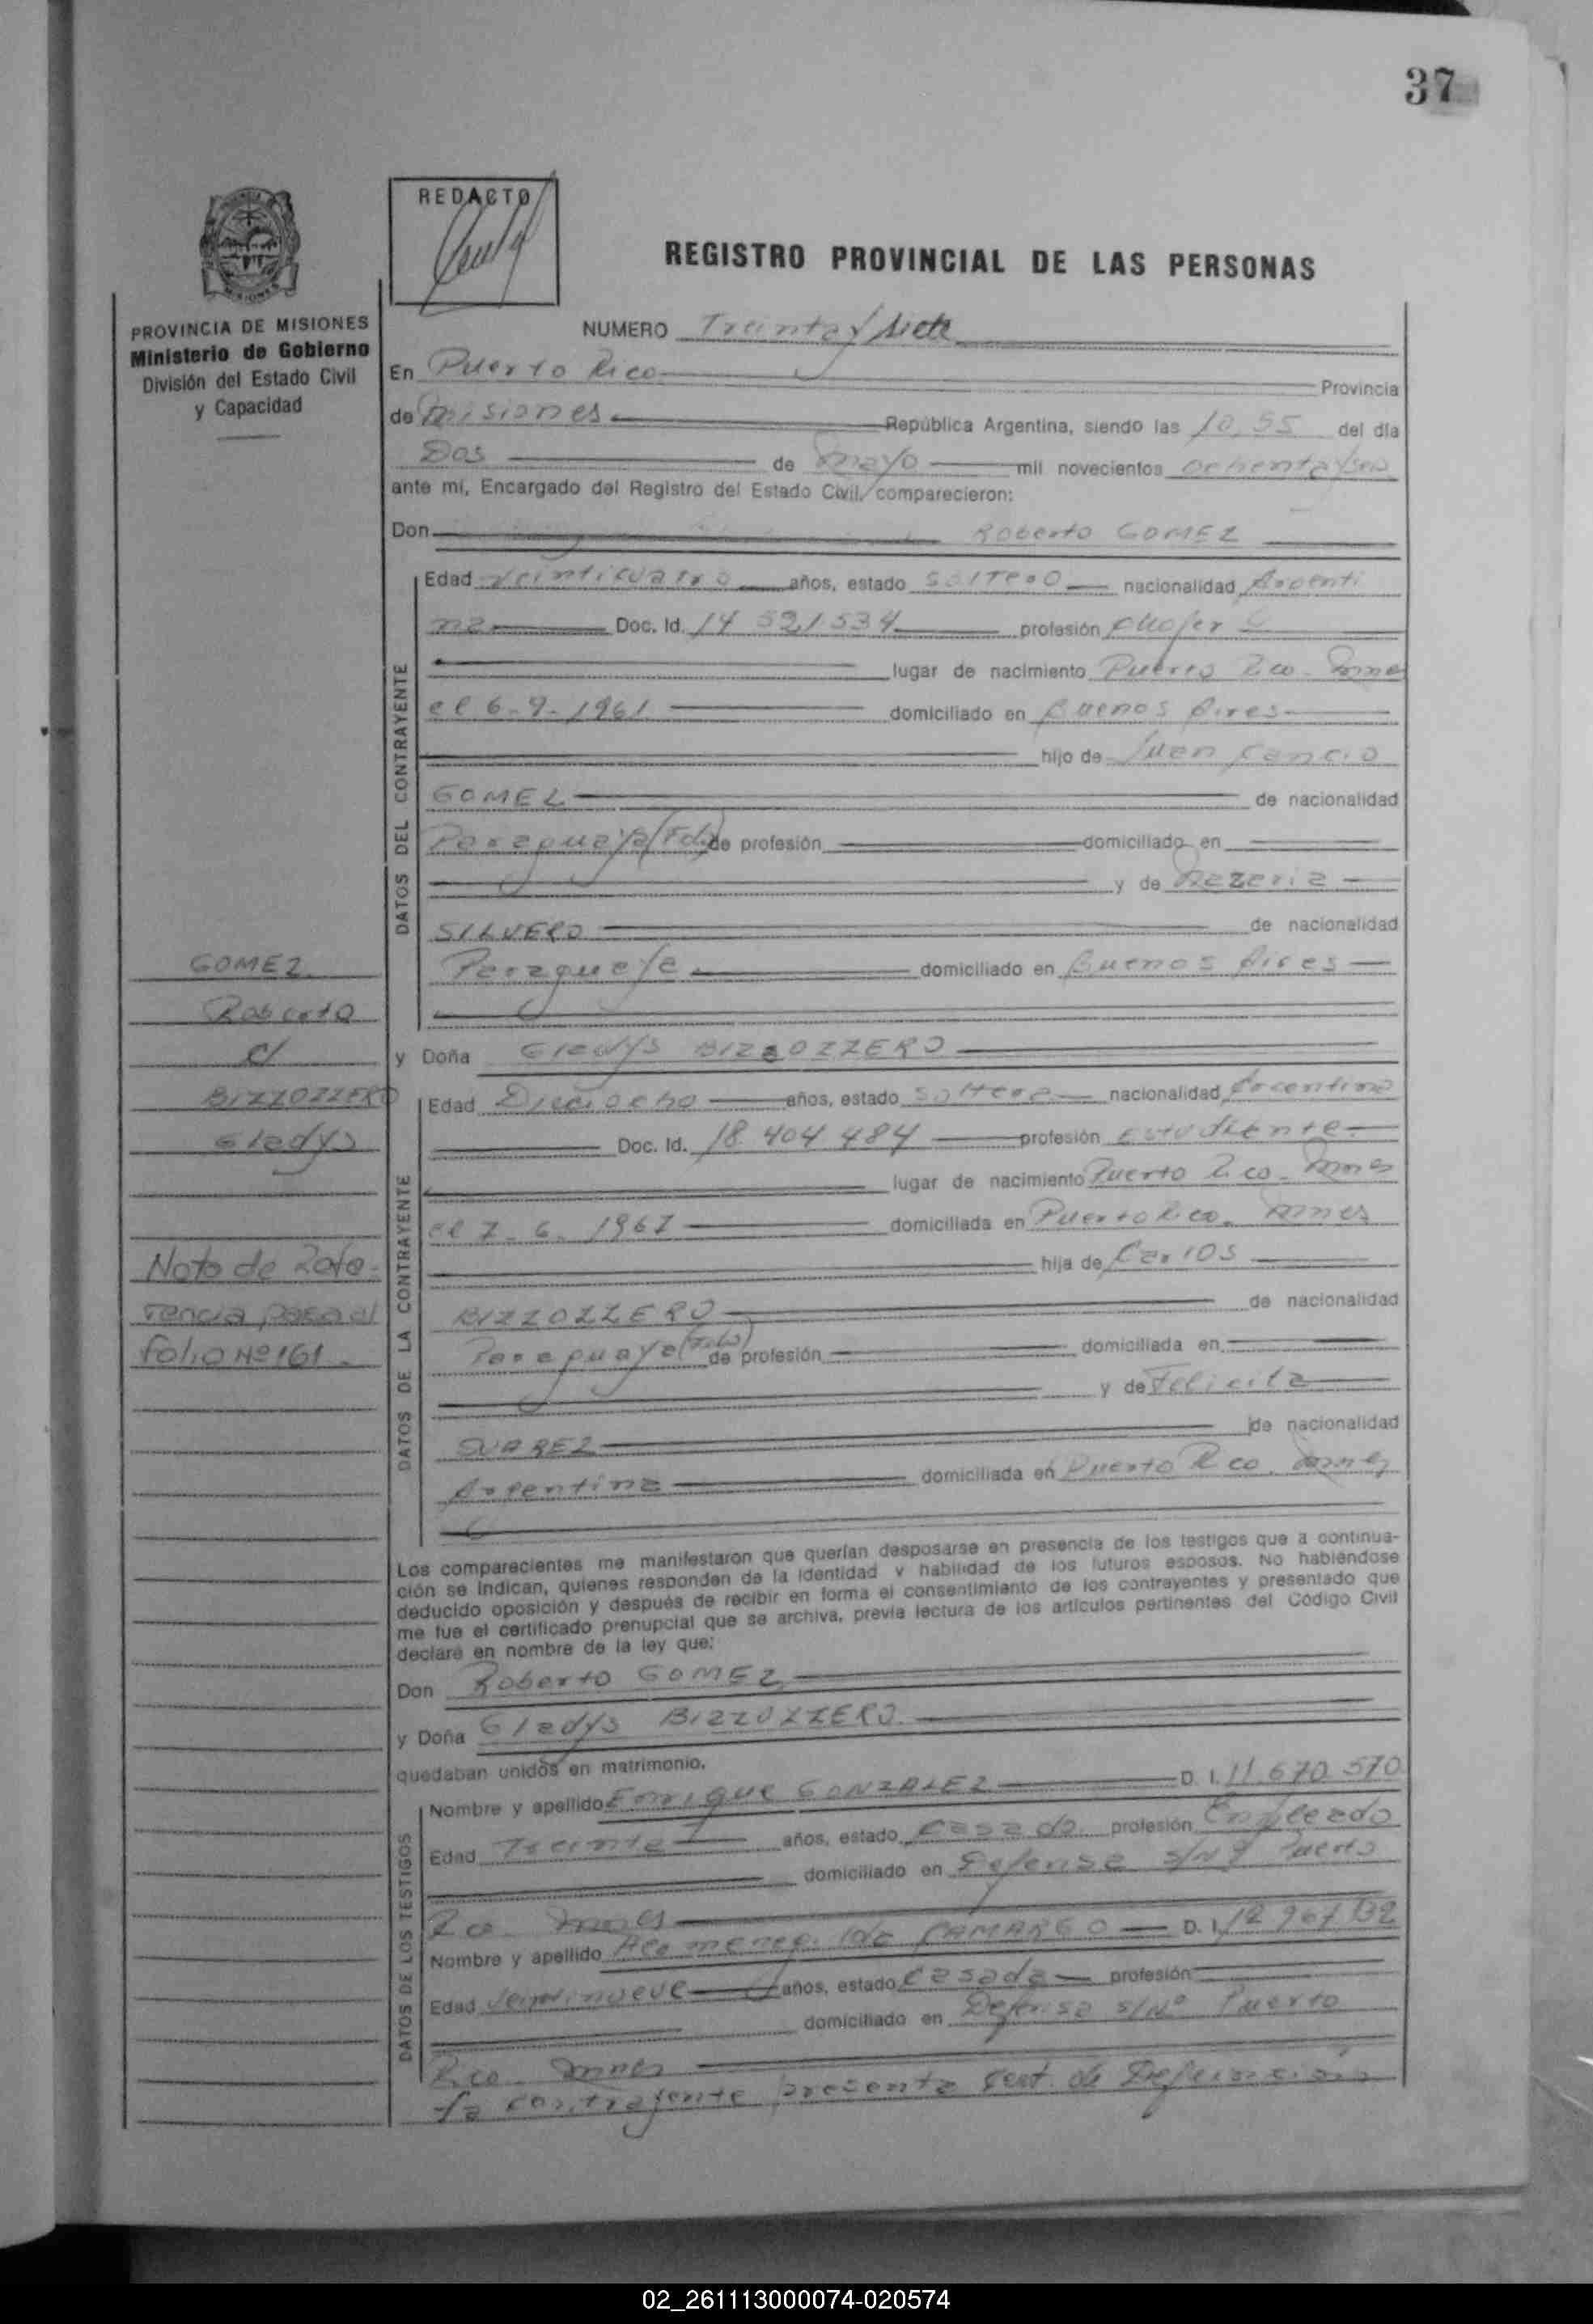 37
REDACTO
REGISTRO PROVINCIAL DE LAS PERSONAS
PROVINCIA DE MISIONES
Ministerio de Gobierno
División del Estado Civil
y Capacidad
NUMERO Treinta y siete
En Puerto Rico Provincia
de Misiones República Argentina, siendo las 10,55 del día
Dos de mayo mil novecientos ochenta y seis
ante mí, Encargado del Registro del Estado Civil, comparecieron:
Don Roberto GOMEZ
DATOS DEL CONTRAYENTE
Edad Veinticuatro años, estado Soltero nacionalidad Argenti
na Doc. Id. 14 521 534 profesión Chofer
lugar de nacimiento Puerto Rico - Mnes
el 6-9-1961 domiciliado en Buenos Aires
hijo de Juan Cancio
GOMEZ de nacionalidad
Paraguaya (Fdo) de profesión domiciliado en
y de Nazaria
SILVERO de nacionalidad
Paraguaya domiciliado en Buenos Aires
GOMEZ
Roberto
c/
BIZZOZZERO
Gladys
Nota de Refe-
rencia pasa al
folio Nº 161
y Doña Gladys BIZZOZZERO
DATOS DE LA CONTRAYENTE
Edad Dieciocho años, estado Soltera nacionalidad Argentina
Doc. Id. 18.404 484 profesión Estudiante
lugar de nacimiento Puerto Rico - Mnes
el 7-6-1967 domiciliada en Puerto Rico. Mnes
hija de Carlos
BIZZOZZERO de nacionalidad
Paraguaya (Fdo) de profesión domiciliada en
y de Felicita
SUAREZ de nacionalidad
Argentina domiciliada en Puerto Rico. Mnes
Los comparecientes me manifestaron que querían desposarse en presencia de los testigos que a continua-
ción se indican, quienes responden de la identidad y habilidad de los futuros esposos. No habiéndose
deducido oposición y después de recibir en forma el consentimiento de los contrayentes y presentado que
me fue el certificado prenupcial que se archiva, previa lectura de los artículos pertinentes del Código Civil
declaré en nombre de la ley que:
Don Roberto GOMEZ
y Doña Gladys BIZZOZZERO
quedaban unidos en matrimonio.
DATOS DE LOS TESTIGOS
Nombre y apellido Enrique GONZALEZ D. I. 11.670 570
Edad Treinta años, estado Casado profesión Empleado
domiciliado en Defensa s/Nº Puerto
Rco. Mnes
Nombre y apellido CAMARGO D. I. 12 967 132
Edad Veintinueve años, estado Casada profesión
domiciliado en Defensa s/Nº Puerto
Rico - Mnes
La contrayente presenta cert. de Defunsión
02_261113000074-020574